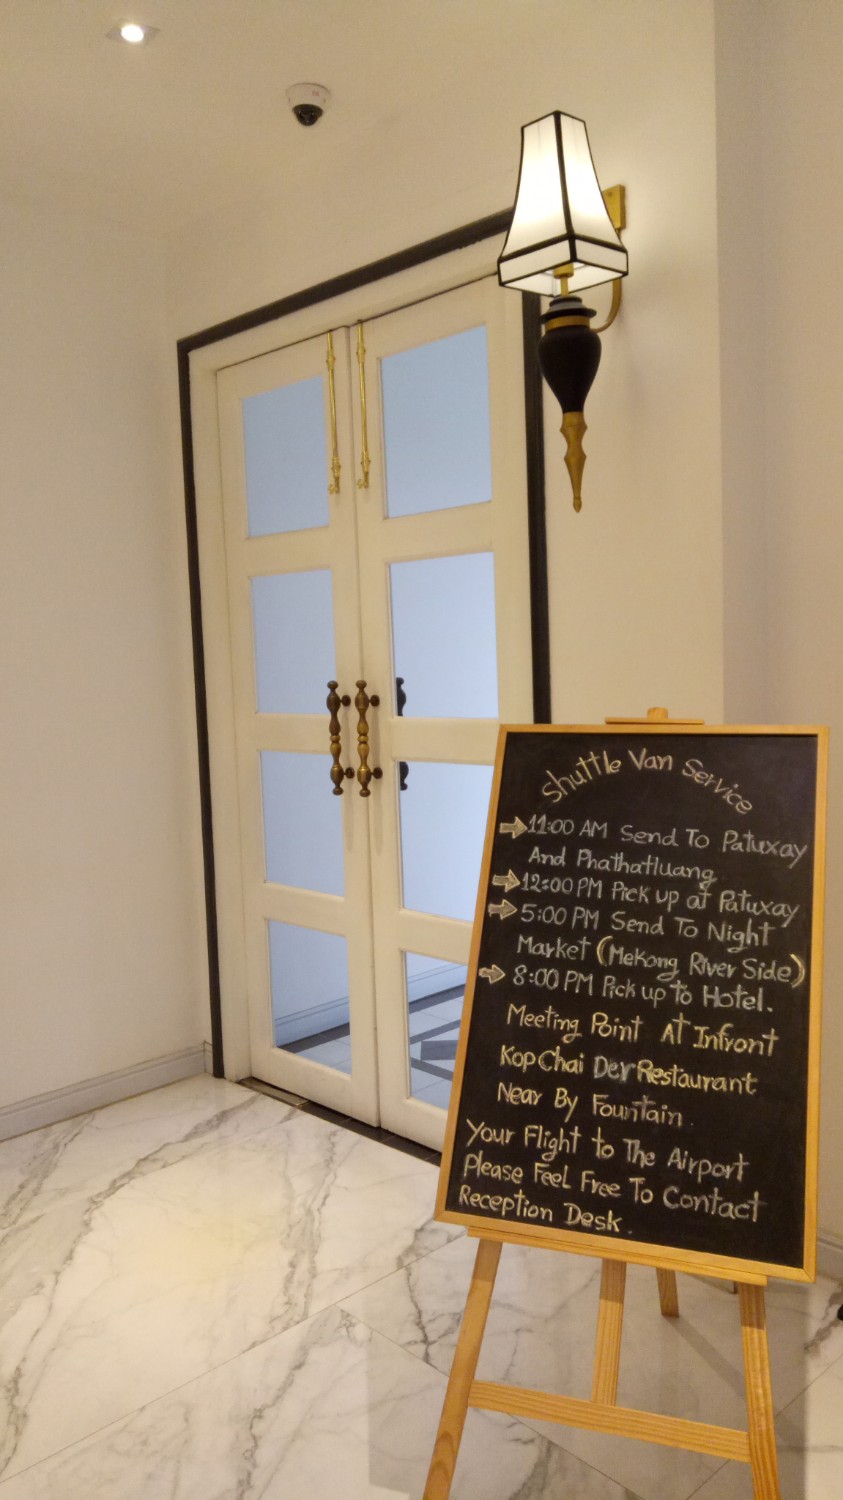 Shuttle Van Service
11:00 AM Send To Patuxay
And Phathatluang
12:00 PM Pick up at Patuxay
5:00 PM Send To Night
Market (Mekong River Side)
8:00 PM Pick up to Hotel.
Meeting Point At Infront
Kop Chai Der Restaurant
Near By Fountain.
Your Flight to The Airport
Please Feel Free To Contact
Reception Desk.